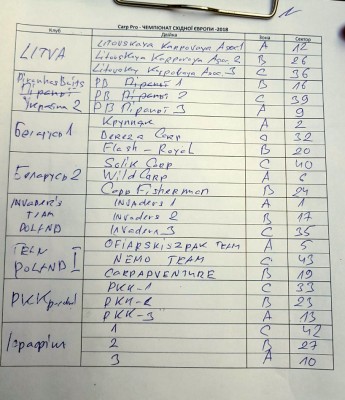 Carp Pro - ЧЕМПІОНАТ СХІДНОЇ ЄВРОПИ -2018
Клуб Двійка Зона Сектор
LITVA Litovskaya Karpovaya Asoc.1 A 12
Litovskaya Karpovaya Asoc. 2 B 26
Litovskay Karpovaya Asoc. 3 C 36
Піраньї Україна 2 PB Піраньї 1 B 16
PB Піраньї 2 C 39
PB Піраньї 3 A 9
Беларусь 1 A 2
Dereza Carp C 32
Flash - Royal B 20
Беларусь 2 Solik Carp C 40
Wild Carp A 6
Carp Fisherman B 24
INVADER'S TEAM POLAND Invaders 1 A 1
Invaders 2 B 17
Invaders 3 C 35
POLAND I OFIARSKISZPAK TEAM A 5
NEMO TEAM C 43
CARPADVENTURE B 19
РКК РКК-1 C 33
РКК-2 B 23
РКК-3 A 13
1 C 42
2 B 27
3 A 10